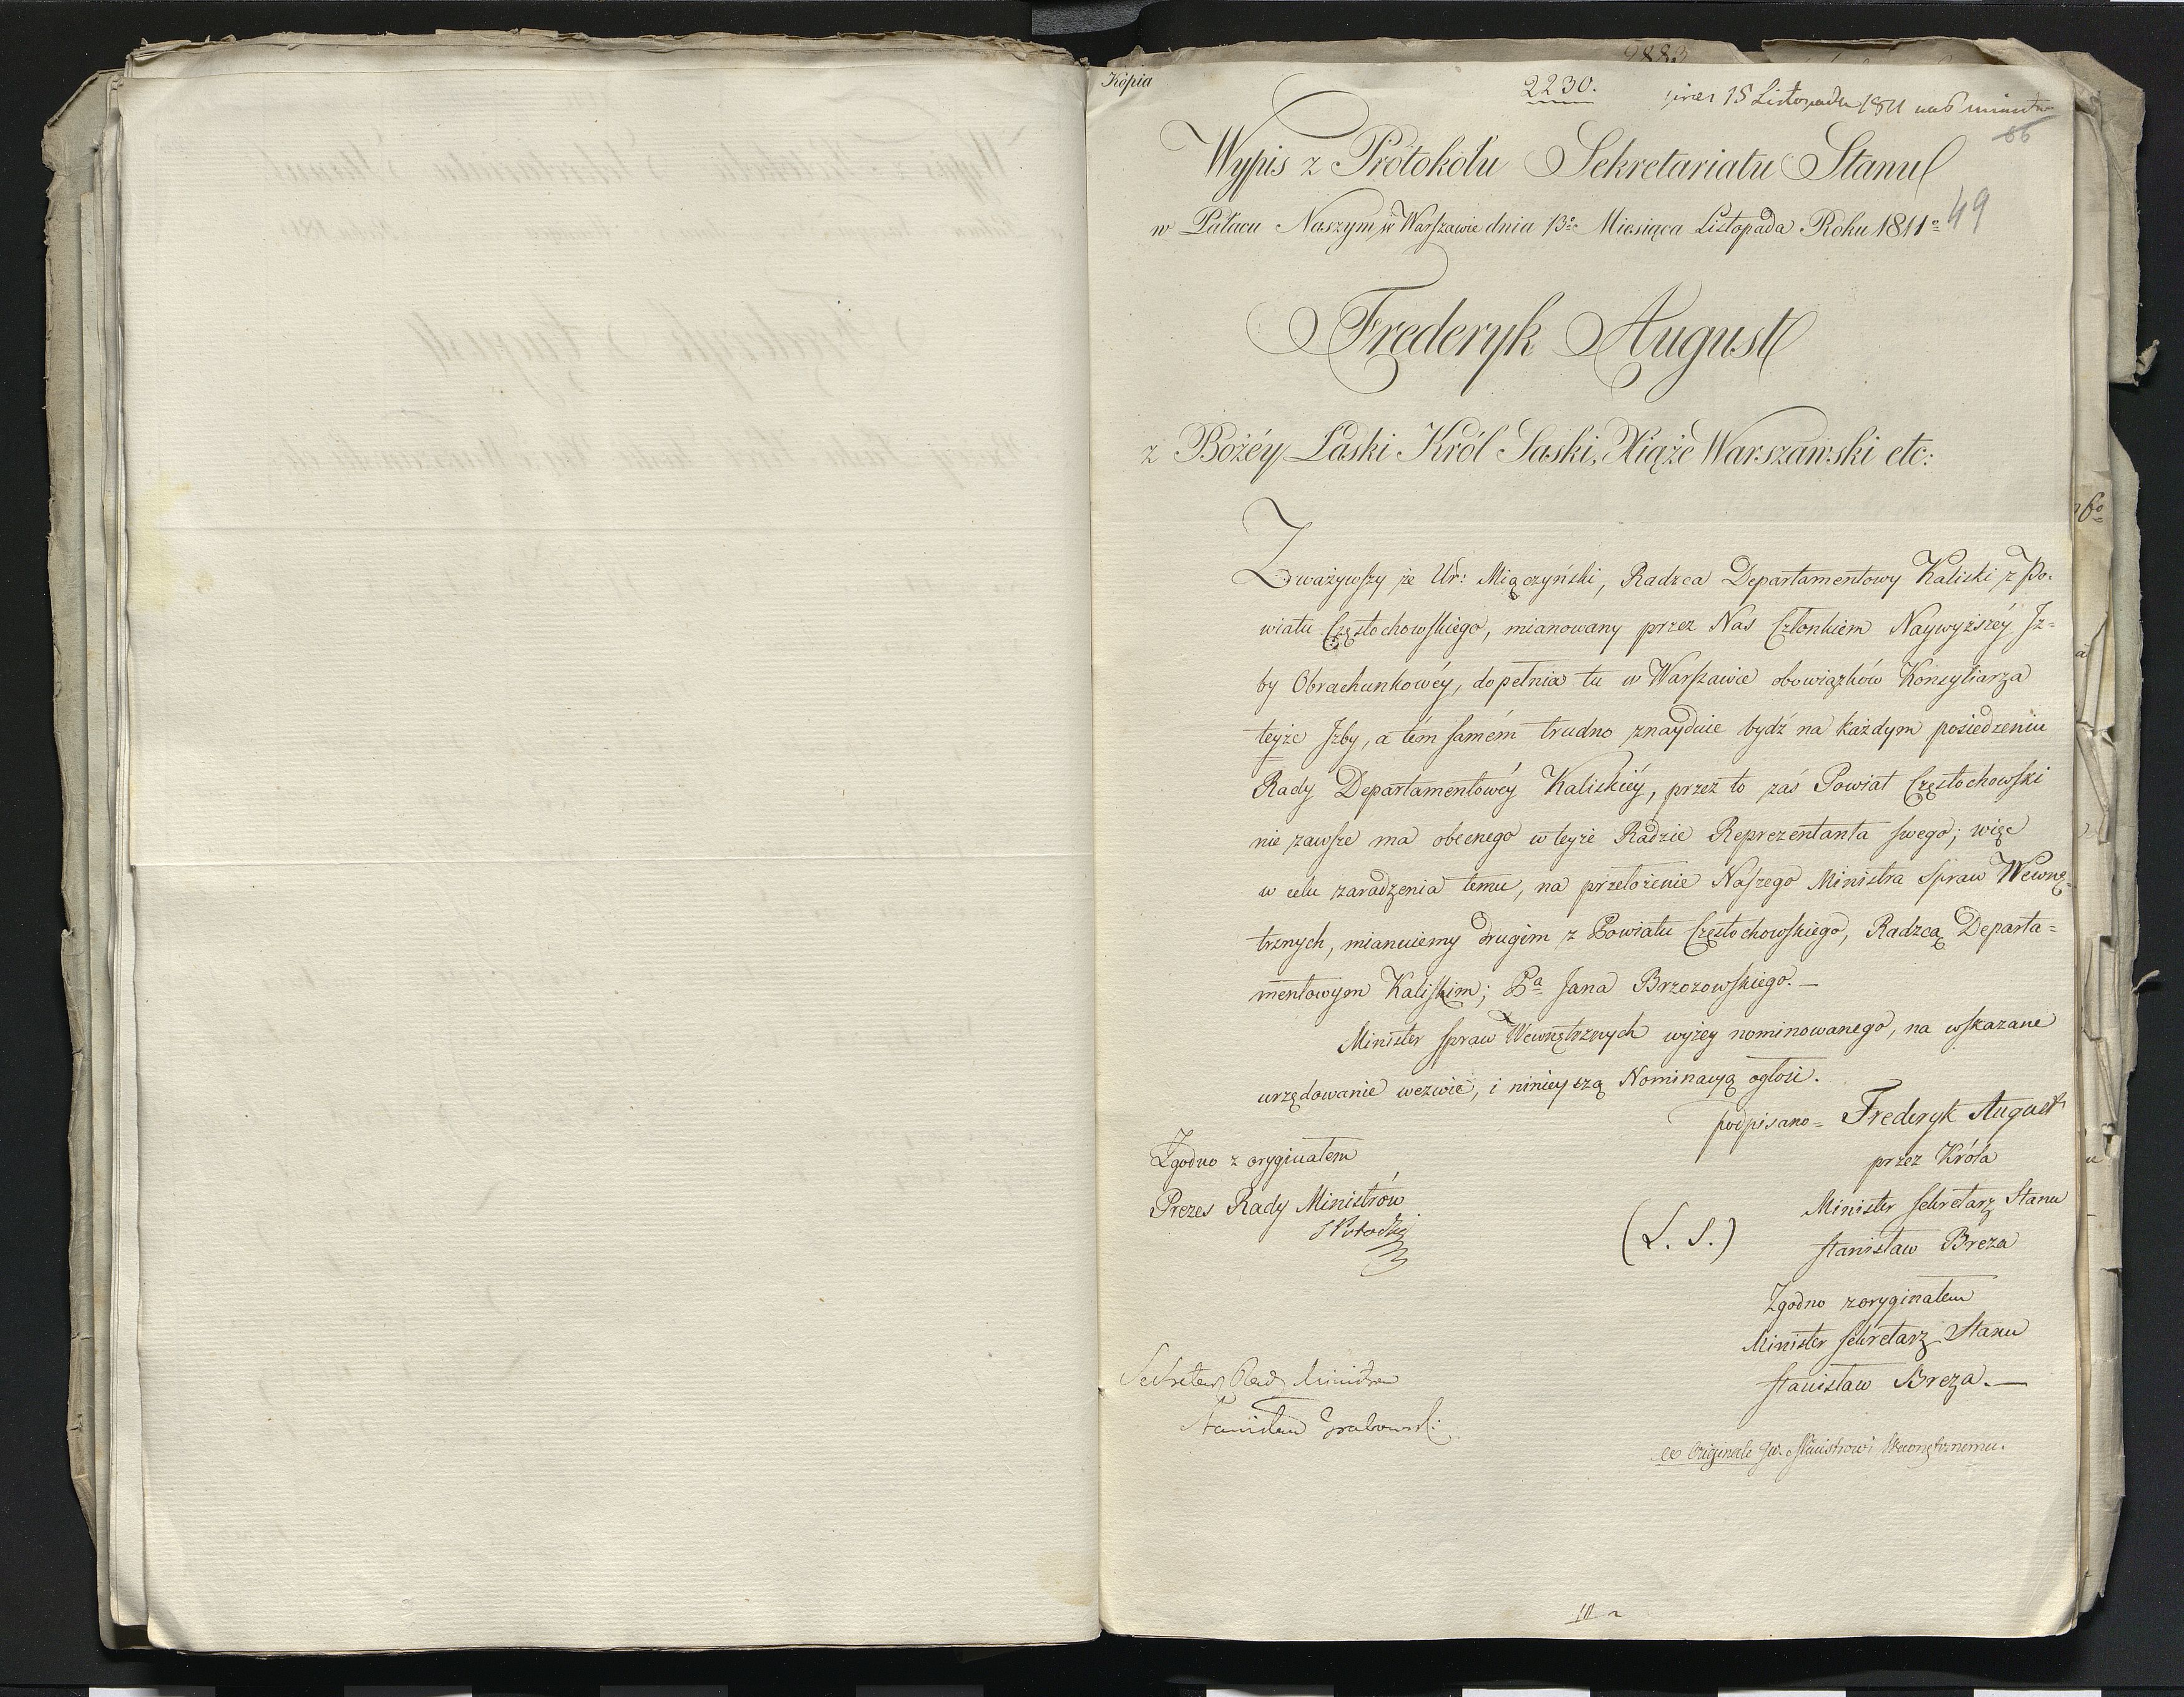 Kópia
2230.
15 Listopada 1811
66
Wypis z Protokółu Sekretariatu Stanu
49
w Pałacu Naszym w Warszawie dnia 13º Miesiąca Listopada Roku 1811º
Frederyk August
z Bożéy Łaski Król Saski, Xiąże Warszawski etc:
Zważywszy że Ur: Miączyński, Radzca Departamentowy Kaliski z Po-
wiatu Częstochowskiego, mianowany przez Nas Członkiem Naywyższéy Jz-
by Obrachunkowéy, dopełnia tu w Warszawie obowiązków Konsyliarza
teyże Jzby, a tém samém trudno znayduie bydź na każdym posiedzeniu
Rady Departamentowéy Kaliskiéy, przez to zaś Powiat Częstochowski
nie zawsze ma obecnego w teyże Radzie Reprezentanta swego; więc
w celu zaradzenia temu, na przełożenie Naszego Ministra Spraw Wewnę-
trznych, mianuiemy drugim z Powiatu Częstochowskiego, Radzcą Departa=
mentowym Kaliskim; Pª Jana Brzozowskiego. —
Minister spraw Wewnętrznych wyżey nominowanego, na wskazane
urzędowanie wezwie, i ninieyszą Nominacyą ogłosi.
podpisano = Frederyk August
przez Króla
Minister Sekretarz Stanu
(L. S.)
Stanisław Breza
Zgodno z oryginałem
Minister Sekretarz Stanu
Stanisław Breza. —
Zgodno z oryginałem
Prezes Rady Ministrów
S Potocki
Sekretarz Rady Ministrów
Stanisław Grabowski
Originale JW. Ministrowi Wewnętrznemu.
6º